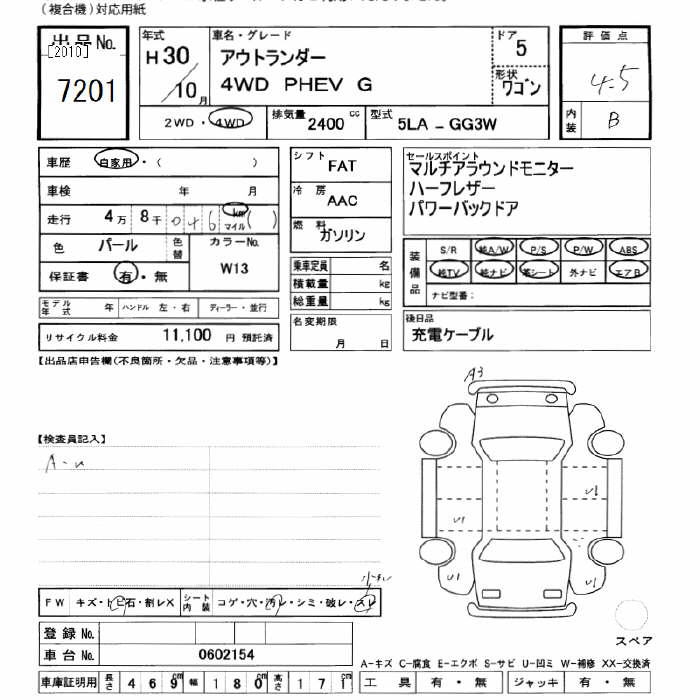 (複合機)対応用紙
出品No.
[2010]
7201
年式
H30
10月
車名・グレード
アウトランダー
4WD PHEV G
ドア
5
形状
ワゴン
評価点
4.5
内装
B
2WD・4WD
排気量 2400 cc
型式 5LA-GG3W
車歴 自家用・( )
車検 年 月
走行 4万 8千 0 4 6 km マイル ( )
色 パール 色替
カラーNo.
W13
保証書 有・無
モデル年式 年 ハンドル 左・右 ディーラー・並行
リサイクル料金 11,100 円 預託済
シフト FAT
冷房 AAC
燃料 ガソリン
乗車定員 名
積載量 kg
総重量 kg
名変期限
月 日
セールスポイント
マルチアラウンドモニター
ハーフレザー
パワーバックドア
装備品
S/R 純A/W P/S P/W ABS
純TV 純ナビ 革シート 外ナビ エアB
ナビ型番:
後日品
充電ケーブル
【出品店申告欄(不良箇所・欠品・注意事項等)】
【検査員記入】
A-u
A3
U1
U1
U1
U1
スペア
FW キズ・トビ石・割レX
シート内装 コゲ・穴・汚レ・シミ・破レ・スレ
登録No.
車台No. 0602154
A-キズ C-腐食 E-エクボ S-サビ U-凹ミ W-補修 XX-交換済
車庫証明用 長さ 469cm 幅 180cm 高さ 171cm
工具 有・無 ジャッキ 有・無